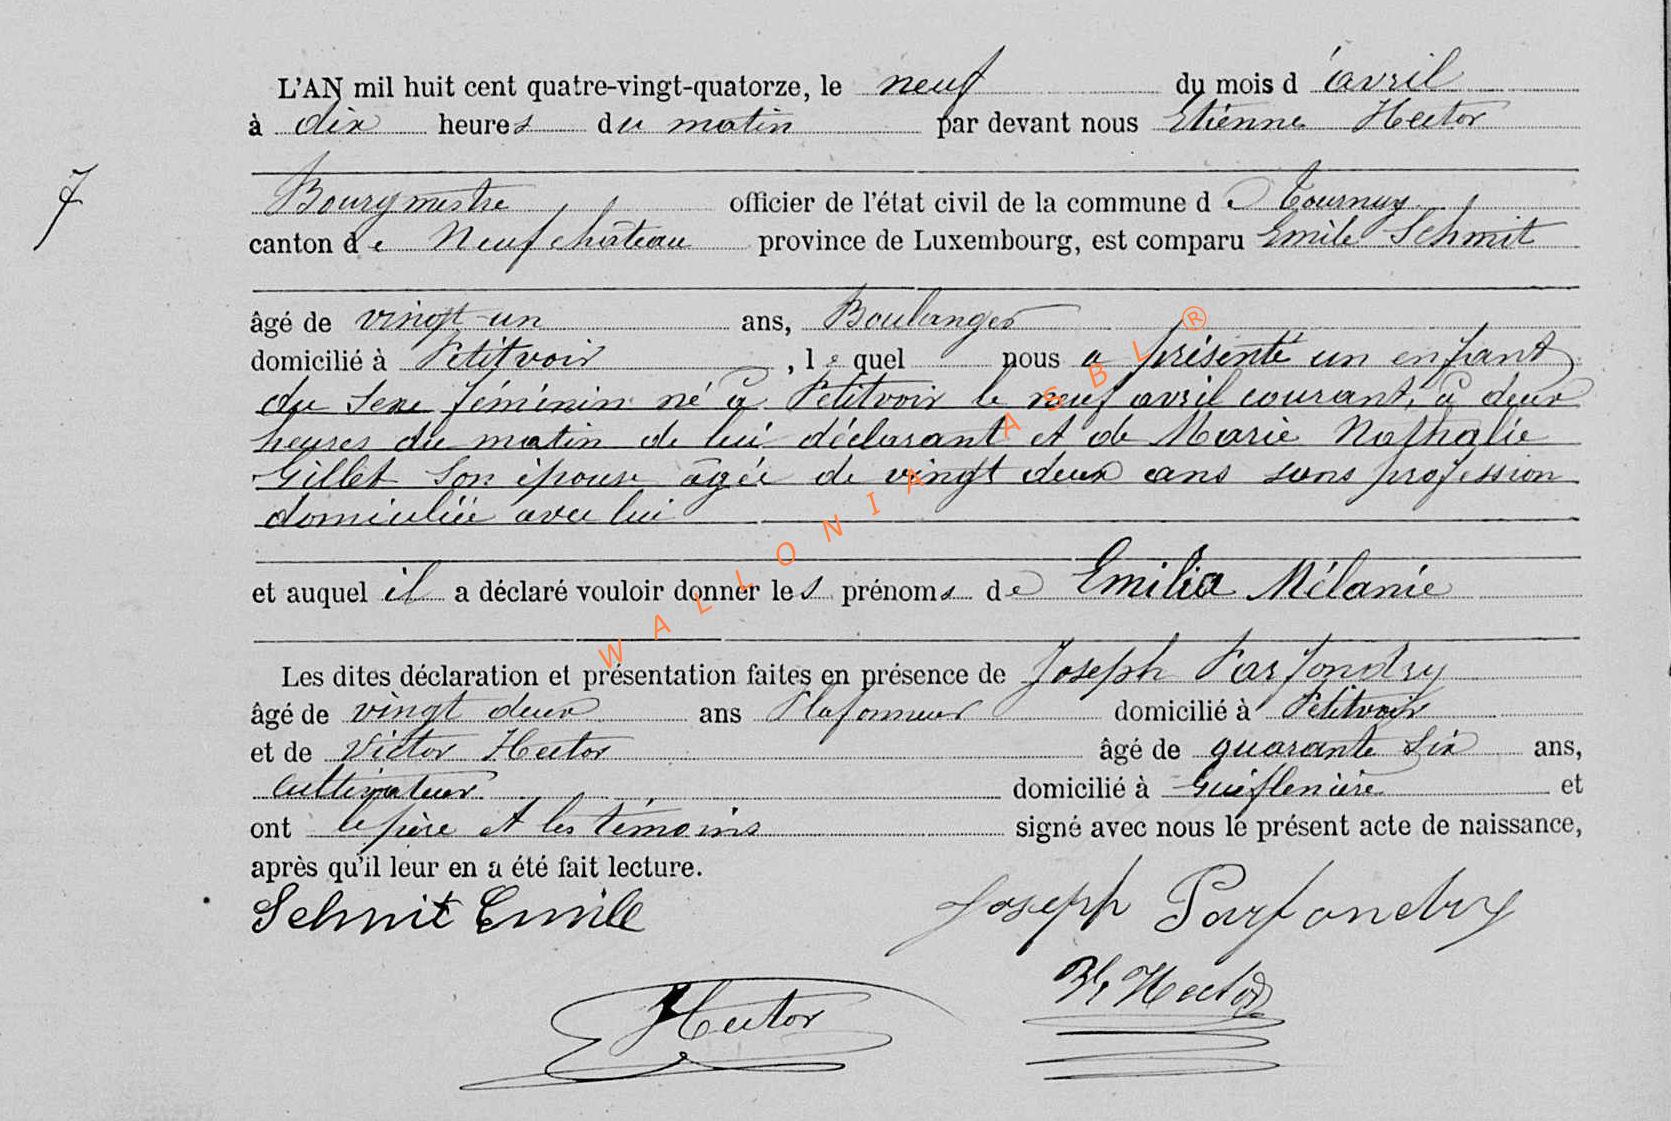 L'AN mil huit cent quatre-vingt-quatorze, le neuf du mois d'avril
à dix heures du matin par devant nous Etienne Hector
7
Bourgmestre officier de l'état civil de la commune de Tournay
canton de Neufchâteau province de Luxembourg, est comparu Emile Schmit
âgé de vingt-un ans, Boulanger
domicilié à Petitvoir, lequel nous a présenté un enfant
du sexe féminin né à Petitvoir le neuf avril courant, à deux
heures du matin de lui déclarant et de Marie Nathalie
Gillet son épouse âgée de vingt deux ans sans profession
domiciliée avec lui
et auquel il a déclaré vouloir donner les prénoms de Emilia Mélanie
Les dites déclaration et présentation faites en présence de Joseph Parfondry
âgé de vingt deux ans Plafonneur domicilié à Petitvoir
et de Victor Hector âgé de quarante six ans,
Cultivateur domicilié à et
ont le père et les témoins signé avec nous le présent acte de naissance,
après qu'il leur en a été fait lecture.
Schmit Emile Joseph Parfondry
Hector Hector
WALLONIA ASBL ®